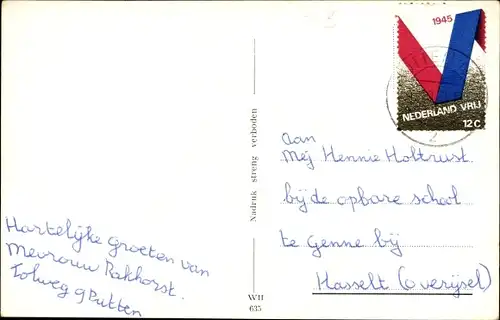 1945
NEDERLAND VRIJ
12c
2
Nadruk streng verboden
WH
635
aan
Mej Hennie Holtrust
bij de opbare school
te Genne bij
Hasselt (Overijsel)
Hartelijke Groeten van
Mevrouw Rakhorst.
Tolweg 9 Putten